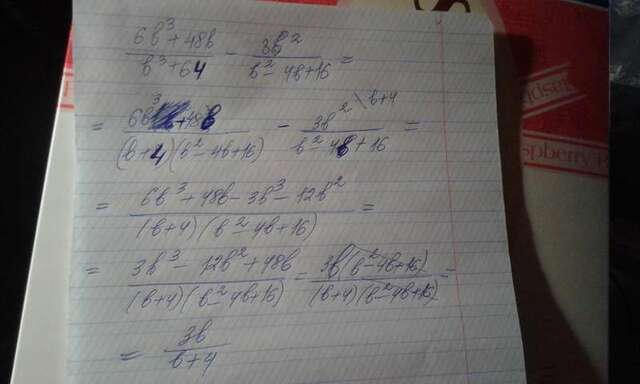 (6b³+48b)/(b³+64) - 3b²/(b²-4b+16) =
= (6b³+48b)/((b+4)(b²-4b+16)) - 3b² \b+4/(b²-4b+16) =
= (6b³+48b-3b³-12b²)/((b+4)(b²-4b+16)) =
= (3b³-12b²+48b)/((b+4)(b²-4b+16)) = 3b(b²-4b+16)/((b+4)(b²-4b+16)) =
= 3b/(b+4)